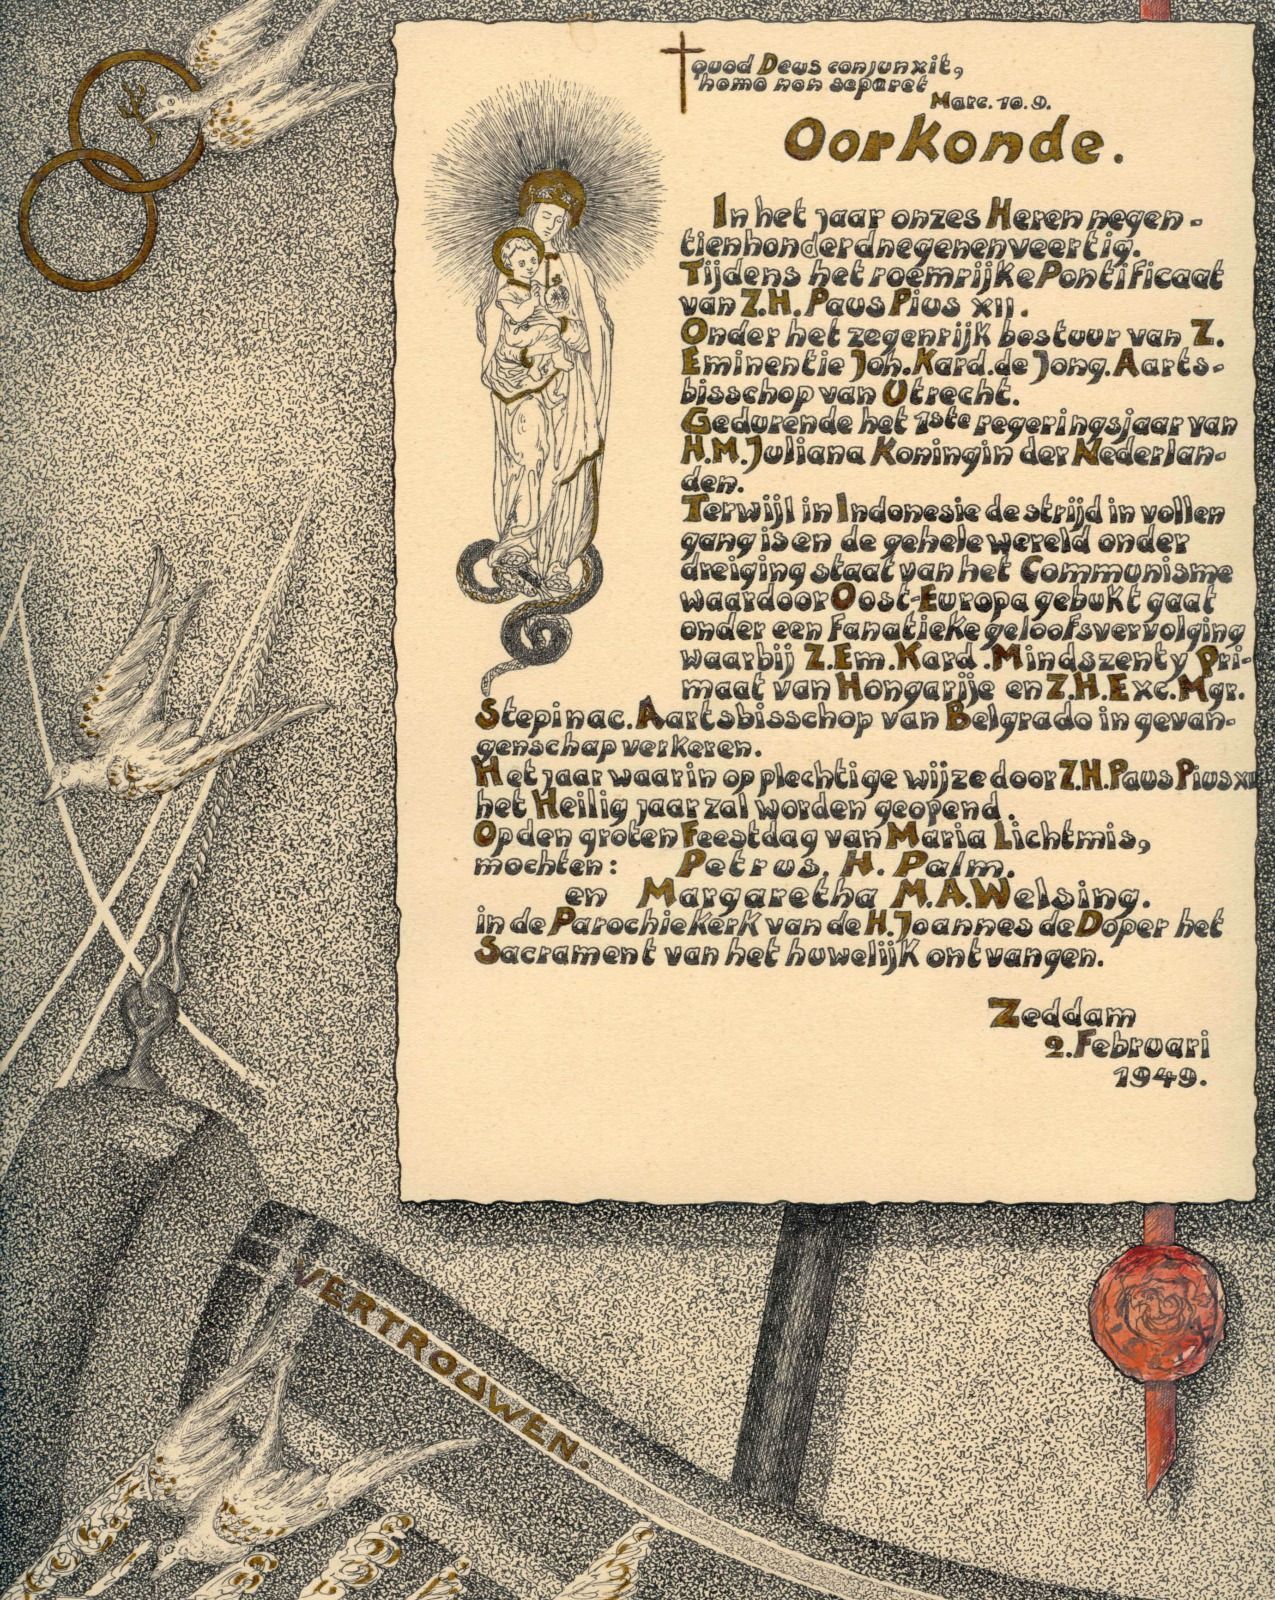 quod Deus conjunxit,
homo non separet
Marc. 10. 9.
Oorkonde.
In het jaar onzes Heren negen-
tienhonderdnegenenveertig.
Tijdens het roemrijke Pontificaat
van Z.H. Paus Pius XII.
Onder het zegenrijk bestuur van Z.
Eminentie Joh. Kard. de Jong. Aarts-
bisschop van Utrecht.
Gedurende het 1ste regeringsjaar van
H.M. Juliana Koningin der Nederlan-
den.
Terwijl in Indonesie de strijd in vollen
gang is en de gehele wereld onder
dreiging staat van het Communisme
waardoor Oost-Europa gebukt gaat
onder een fanatieke geloofsvervolging
waarbij Z.Em. Kard. Mindszenty Pri-
maat van Hongarije en Z.H.Exc. Mgr.
Stepinac. Aartsbisschop van Belgrado in gevan-
genschap verkeren.
Het jaar waarin op plechtige wijze door Z.H. Paus Pius XII
het Heilig jaar zal worden geopend.
Op den groten Feestdag van Maria Lichtmis,
mochten: Petrus. H. Palm.
en Margaretha M.A. Welsing.
in de Parochiekerk van de H. Joannes de Doper het
Sacrament van het huwelijk ontvangen.
Zeddam
2. Februari
1949.
VERTROUWEN.